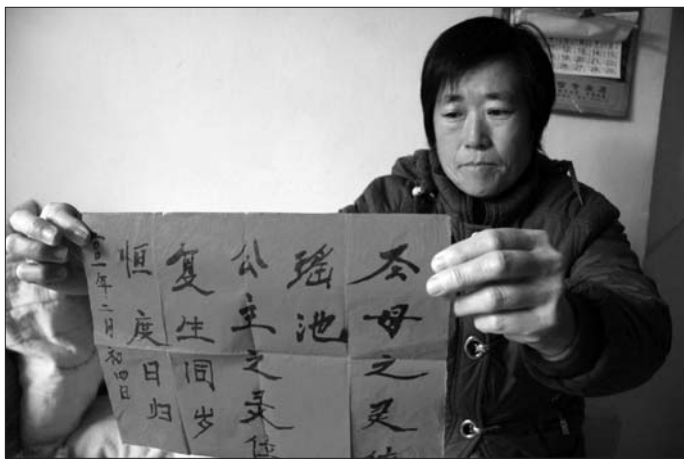 圣母之灵位
瑶池
公主之灵位
复生同岁
恒度日归
年二月初四日